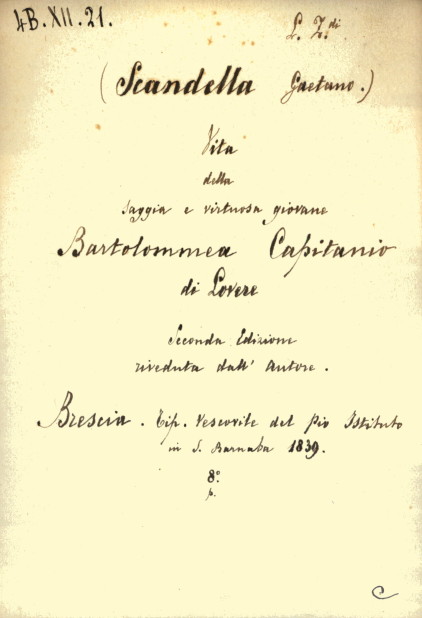 4B.XII.21.
L. Z.di
(Scandella Gaetano.)
Vita
della
saggia e virtuosa giovane
Bartolommea Capitanio
di Lovere
Seconda Edizione
riveduta dall' Autore.
Brescia. Tip. Vescovile del Pio Istituto
in S. Barnaba 1839.
8.°
p.
C